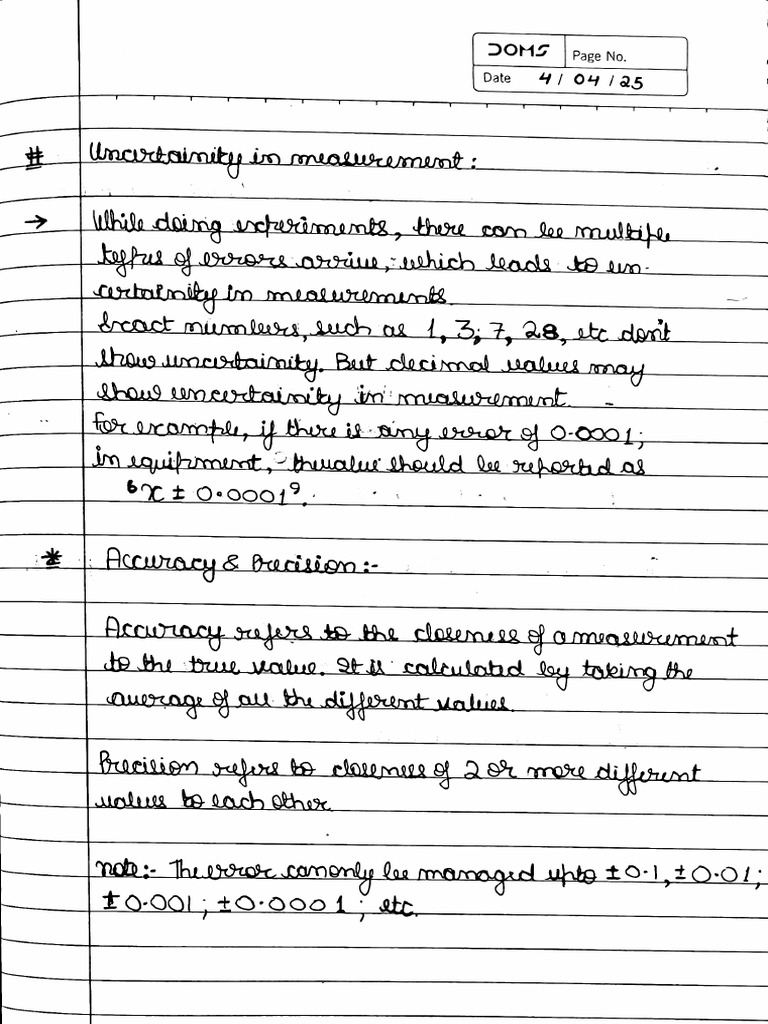 DOMS Page No.
Date 4/04/25
# Uncertainity in measurement:
→ While doing experiments, there can be multiple
types of errors arrive, which leads to un-
certainity in measurements.
Exact numbers, such as 1, 3, 7, 28, etc don't
show uncertainity. But decimal values may
show uncertainity in measurement.
For example, if there is any error of 0.0001;
in equipment, the value should be reported as
'x ± 0.0001'.
* Accuracy & Precision:-
Accuracy refers to the closeness of a measurement
to the true value. It is calculated by taking the
average of all the different values.
Precision refers to closeness of 2 or more different
values to each other
note:- The error can only be managed upto ±0.1, ±0.01;
±0.001; ±0.0001; etc.